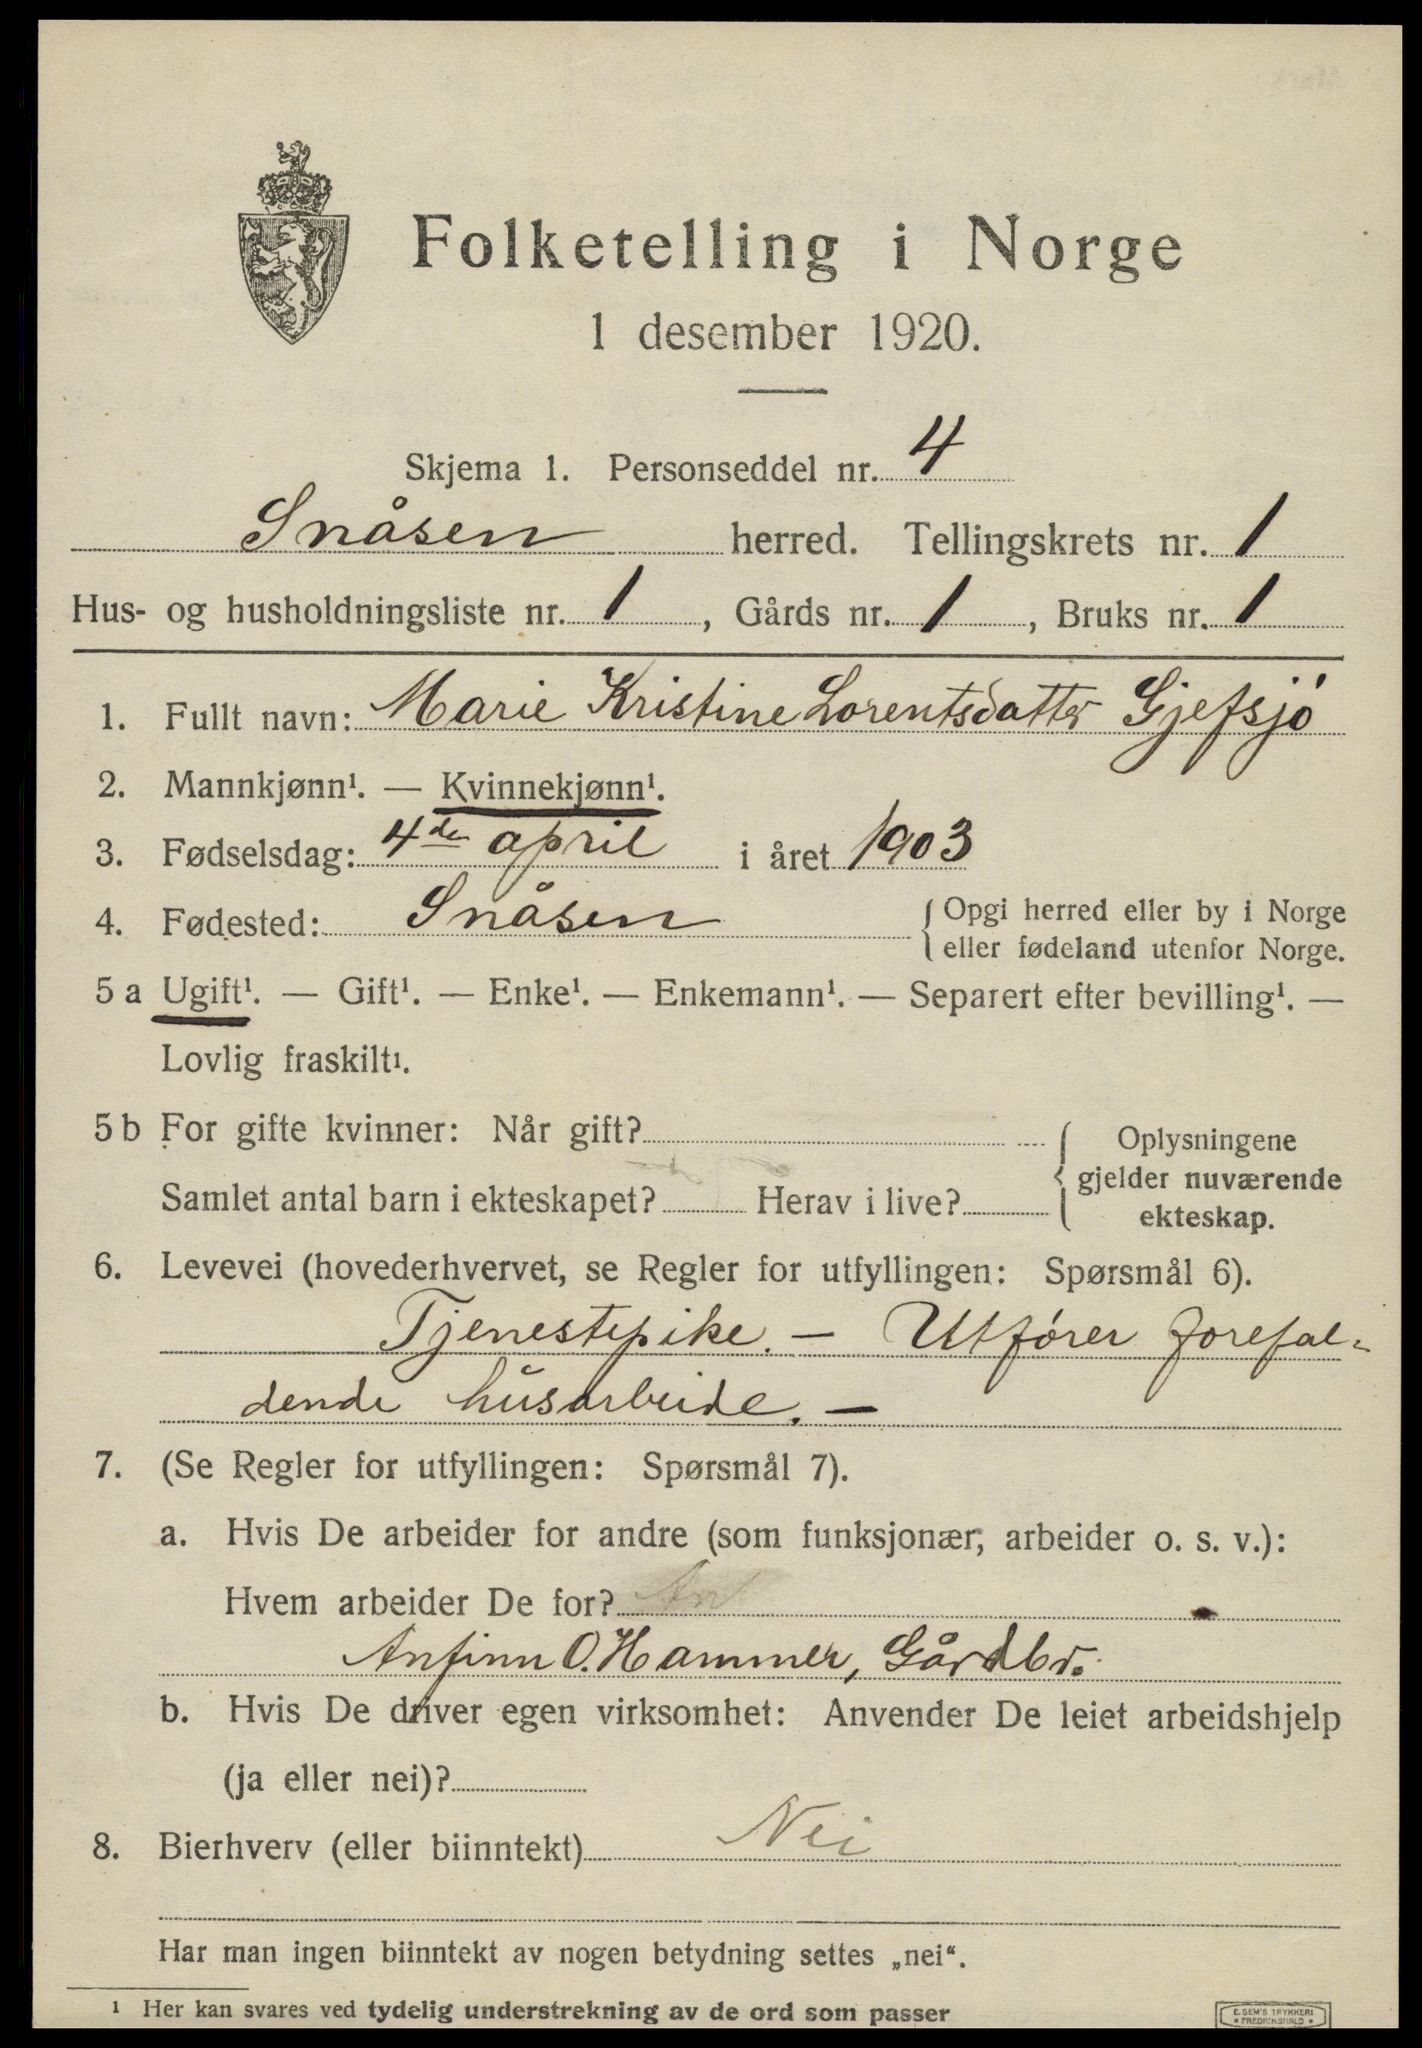 Folketelling i Norge
1 desember 1920.
Skjema 1. Personseddel nr. 4
Snåsen herred. Tellingskrets nr. 1
Hus- og husholdningsliste nr. 1, Gårds nr. 1, Bruks nr. 1
1. Fullt navn: Marie Kristine Lorentsdatter Gjefsjó
2. Mannkjønn¹. — Kvinnekjønn¹.
3. Fødselsdag: 4de april i året 1903
4. Fødested: Snåsen { Opgi herred eller by i Norge
eller fødeland utenfor Norge.
5 a Ugift¹. — Gift¹. — Enke¹. — Enkemann¹. — Separert efter bevilling¹. —
Lovlig fraskilt¹.
5 b For gifte kvinner: Når gift? { Oplysningene
gjelder nuværende
Samlet antal barn i ekteskapet? Herav i live? ekteskap.
6. Levevei (hovederhvervet, se Regler for utfyllingen: Spørsmål 6).
Tjenestepike. — Utfórer forefal-
dende húsarbeide. —
7. (Se Regler for utfyllingen: Spørsmål 7).
a. Hvis De arbeider for andre (som funksjonær, arbeider o. s. v.):
Hvem arbeider De for? An
Anfinn O. Hammer, Gårdbr.
b. Hvis De driver egen virksomhet: Anvender De leiet arbeidshjelp
(ja eller nei)?
8. Bierhverv (eller biinntekt) Nei
Har man ingen biinntekt av nogen betydning settes „nei“.
¹ Her kan svares ved tydelig understrekning av de ord som passer
E. SEM'S TRYKKERI
FREDRIKSHALD